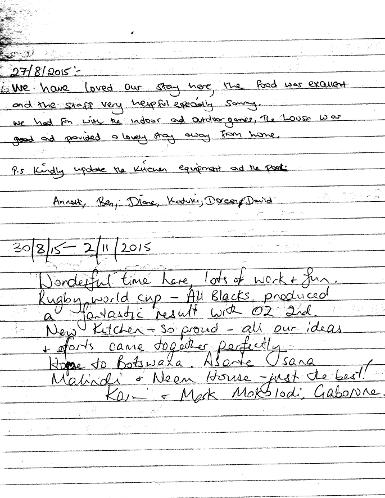 27/8/2015:-
We have loved our stay here, the food was excellent
and the staff very helpful especially Sammy.
We had fun with the indoor and outdoor games, The house was
good and provided a lovely stay away from home.
P.s Kindly update the kitchen equipment and the pool.
Annet, Ben, Diane, Dorcas, David
30/8/15 – 2/11/2015
Wonderful time here, lots of work & fun.
Rugby world cup – All Blacks produced
a fantastic result with OZ 2nd.
New Kitchen – so proud – all our ideas
& efforts came together perfectly.
Home to Botswana. Asante Sana
Malindi & Neem House – just the best!
& Mark Mokolodi, Gaborone.